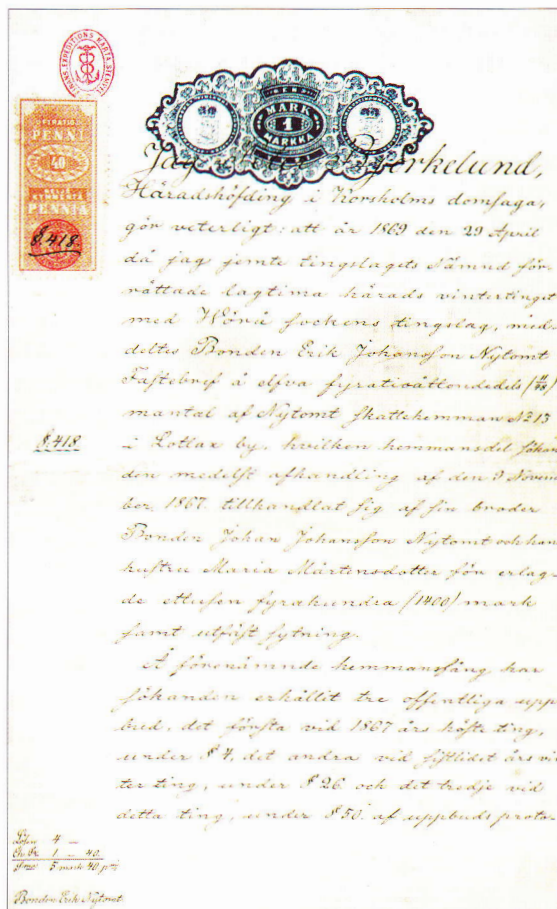 FINANS EXPEDITIONS KARTA SIGILLATA
PENNI
40
PENNIÄ
§ 418
MARK
1
MARKKA
Jag Bjerkelund,
Häradshöfding i Korsholms domsaga,
gör veterligt: att år 1869 den 29 April
då jag jemte tingslagets Nämnd för-
rättade lagtima härads vintertinget
med Wörå sockens tingslag, med-
deltes Bonden Erik Johansson Nytomt
Fastebref å elfva fyratioåttondedels (11/48)
mantal af Nytomt Skattehemman No 13
§ 418
i Lotlax by, hvilken hemmansdel sökan
den medelst afhandling af den 9 Novem
ber 1867 tillhandlat sig af sin broder
Bonden Johan Johansson Nytomt och han
hustru Maria Mårtensdotter för erlag-
de ettusen fyrahundra (1400) mark
samt utfäst sytning.
Å förenämnde hemmansfång har
sökanden erhållit tre offentliga upp
bud, det första vid 1867 års höste ting,
under § 4, det andra vid sistlidet års vi
ter ting, under § 26 och det tredje vid
detta ting, under § 50 af uppbuds proto-
Lösen 4 —
1 — 40.
5 mark 40 pni
Bonden Erik Nytomt